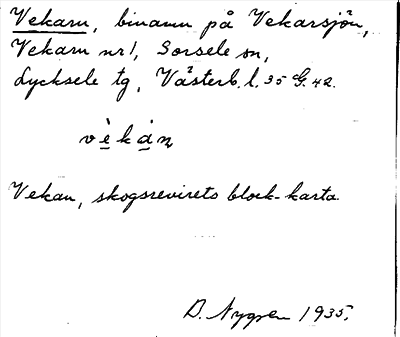 Vekarn, binamn på Vekarsjön,
Vekarn nr 1, Sorsele sn,
Lycksele tg, Västerb. l. 35 G. 42.
vèkán
Vekan, skogsrevirets block-karta.
D. Nygren 1935.